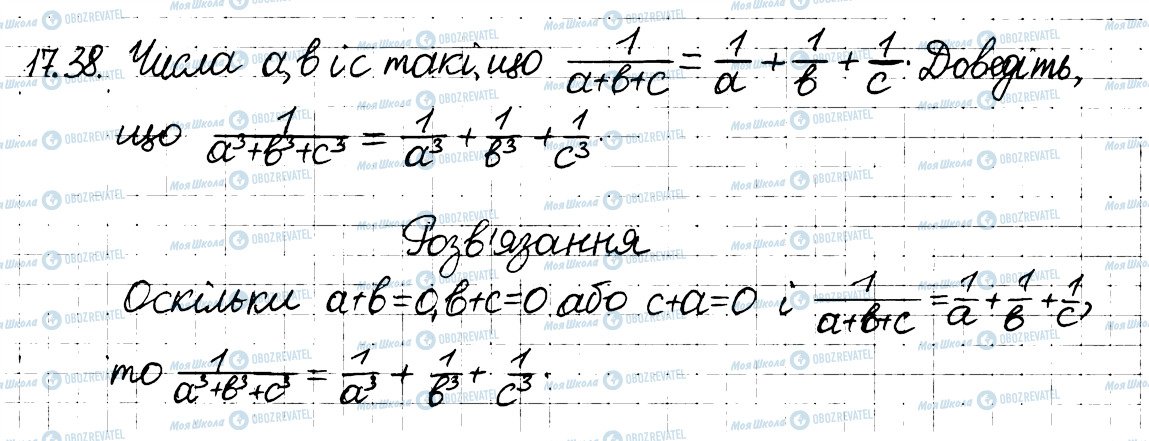 17.38. Числа a, в і c такі, що 1/(a+в+c) = 1/a + 1/в + 1/c. Доведіть,
що 1/(a³+в³+c³) = 1/a³ + 1/в³ + 1/c³.
Розв'язання
Оскільки a+в=0, в+c=0 або c+a=0 і 1/(a+в+c) = 1/a + 1/в + 1/c,
то 1/(a³+в³+c³) = 1/a³ + 1/в³ + 1/c³.